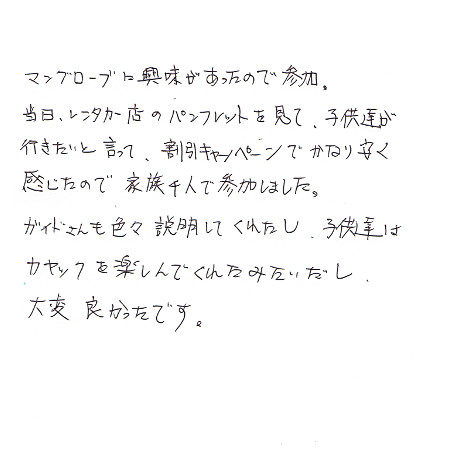 マングローブに興味があったので参加。
当日、レンタカー店のパンフレットを見て、子供達が
行きたいと言って、割引キャンペーンでかなり安く
感じたので家族4人で参加しました。
ガイドさんも色々説明してくれたし、子供達は
カヤックを楽しんでくれたみたいだし、
大変良かったです。